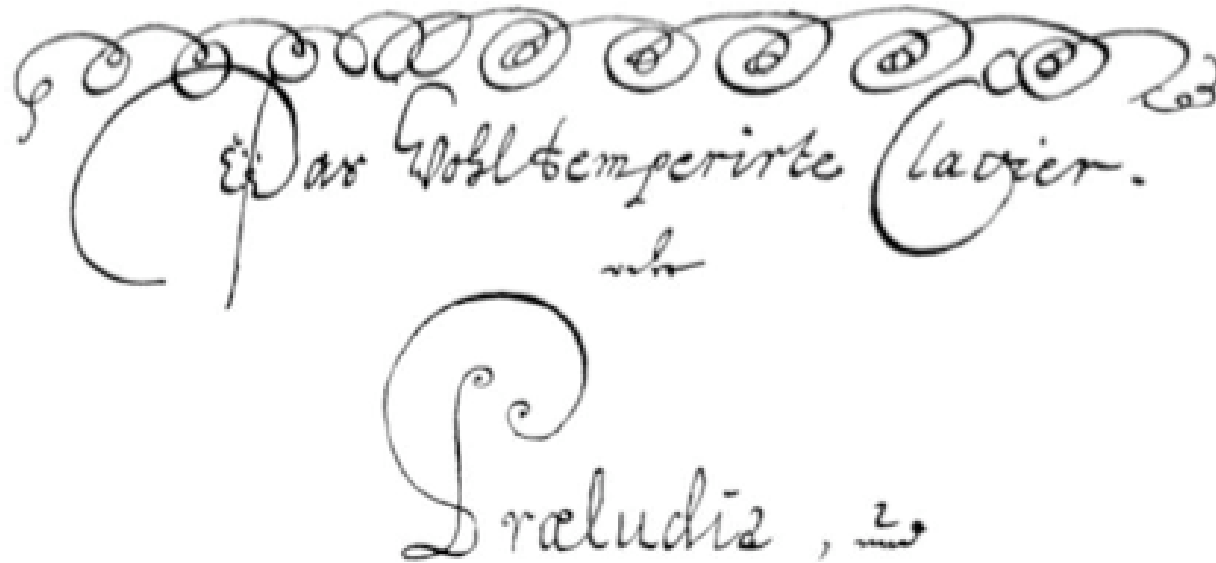 Das Wohltemperirte Clavier.
oder
Præludia, und